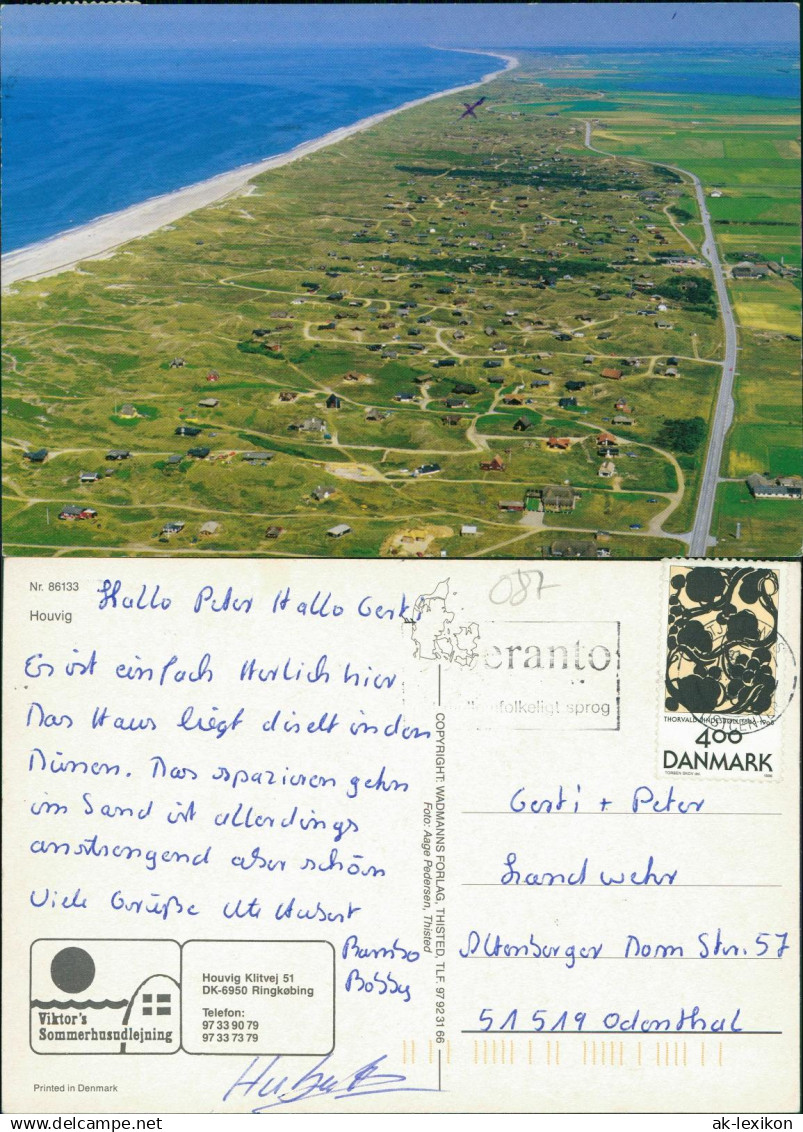 Nr. 86133
Houvig
Hallo Peter Hallo Gerti
Es ist einfach Herlich hier.
Das Haus liegt direkt in den
Dünen. Das spazieren gehn
im Sand ist allerdings
anstrengend aber schön
Viele Grüße Ute Hubert
Bambo
Bobby
Hubert
Viktor's
Sommerhusudlejning
Houvig Klitvej 51
DK-6950 Ringkøbing
Telefon:
97 33 90 79
97 33 73 79
Printed in Denmark
COPYRIGHT: WADMANNS FORLAG, THISTED, TLF. 97 92 31 66
Foto: Aage Pedersen, Thisted
087
eranto
folkeligt sprog
4.00
DANMARK
Gerti + Peter
Landwehr
Altenberger Dom Str. 57
51519 Odenthal
ak-lexikon